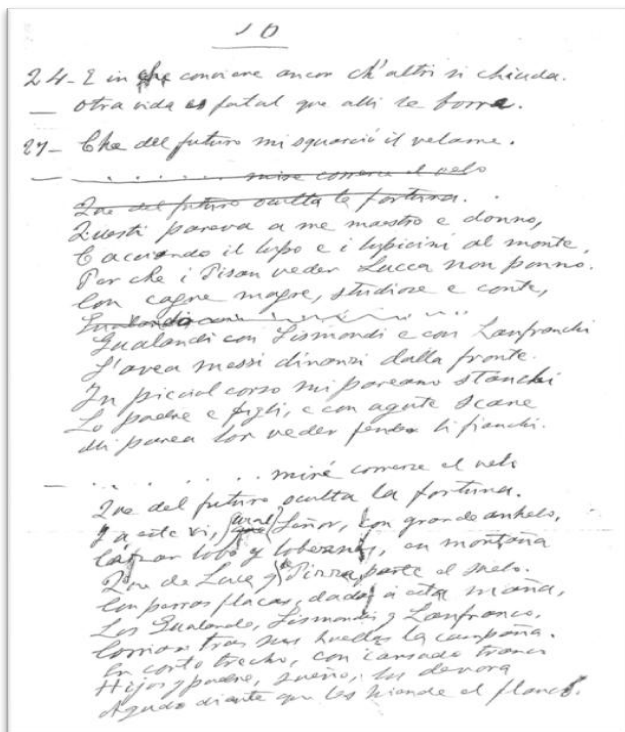 10
24- E in che conviene ancor ch'altri si chiuda.
— Otra vida es fatal que alli se borra.
27- Che del futuro mi squarciò il velame.
— . . . . . . . mire correrse el velo
Que del futuro oculta la fortuna.
Questi pareva a me maestro e donno,
Cacciando il lupo e i lupicini al monte,
Per che i Pisan veder Lucca non ponno.
Con cagne magre, studiose e conte,
Gualandi con
Gualandi con Sismondi e con Lanfranchi
S'avea messi dinanzi dalla fronte.
In picciol corso mi pareano stanchi
Lo padre e figli, e con agute scane
Mi parea lor veder fender li fianchi.
— . . . . . . . . miré correrse el velo
Que del futuro oculta la fortuna.
Y a este vi, cual Señor, con grande anhelo,
lobo y loberznos, en montaña
Que de Luca y Pizza parte el suelo.
Con perros flacos, dados a esta maña,
Los Gualando, Sismondi y Lanfranco,
Corrian tras sus huellas la campaña.
En corto trecho, con cansado tranco
Hijos y padre, sueño, los devora
Agudo diente que les hiende el flanco.